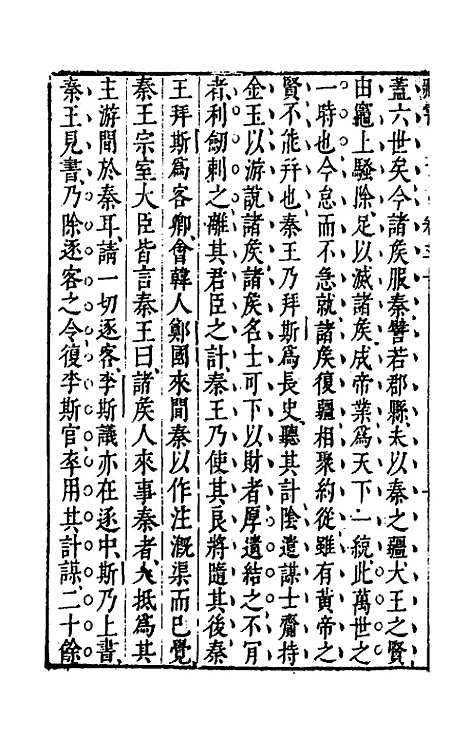 蓋六世矣今諸矦服秦譬若郡縣夫以秦之疆大王之賢
由竈上騷除足以滅諸矦成帝業爲天下一統此萬世之
一時也今怠而不急就諸矦復疆相聚約從雖有黃帝之
賢不能幷也秦王乃拜斯爲長史聽其計陰遣謀士齎持
金玉以游說諸矦諸矦名士可下以財者厚遺結之不肎
者利劒刺之離其君臣之計秦王乃使其良將隨其後秦
王拜斯爲客卿會韓人鄭國來間秦以作注溉渠而已覺
秦王宗室大臣皆言秦王曰諸矦人來事秦者大抵爲其
主游間於秦耳請一切逐客李斯議亦在逐中斯乃上書
秦王見書乃除逐客之令復李斯官卒用其計謀二十餘